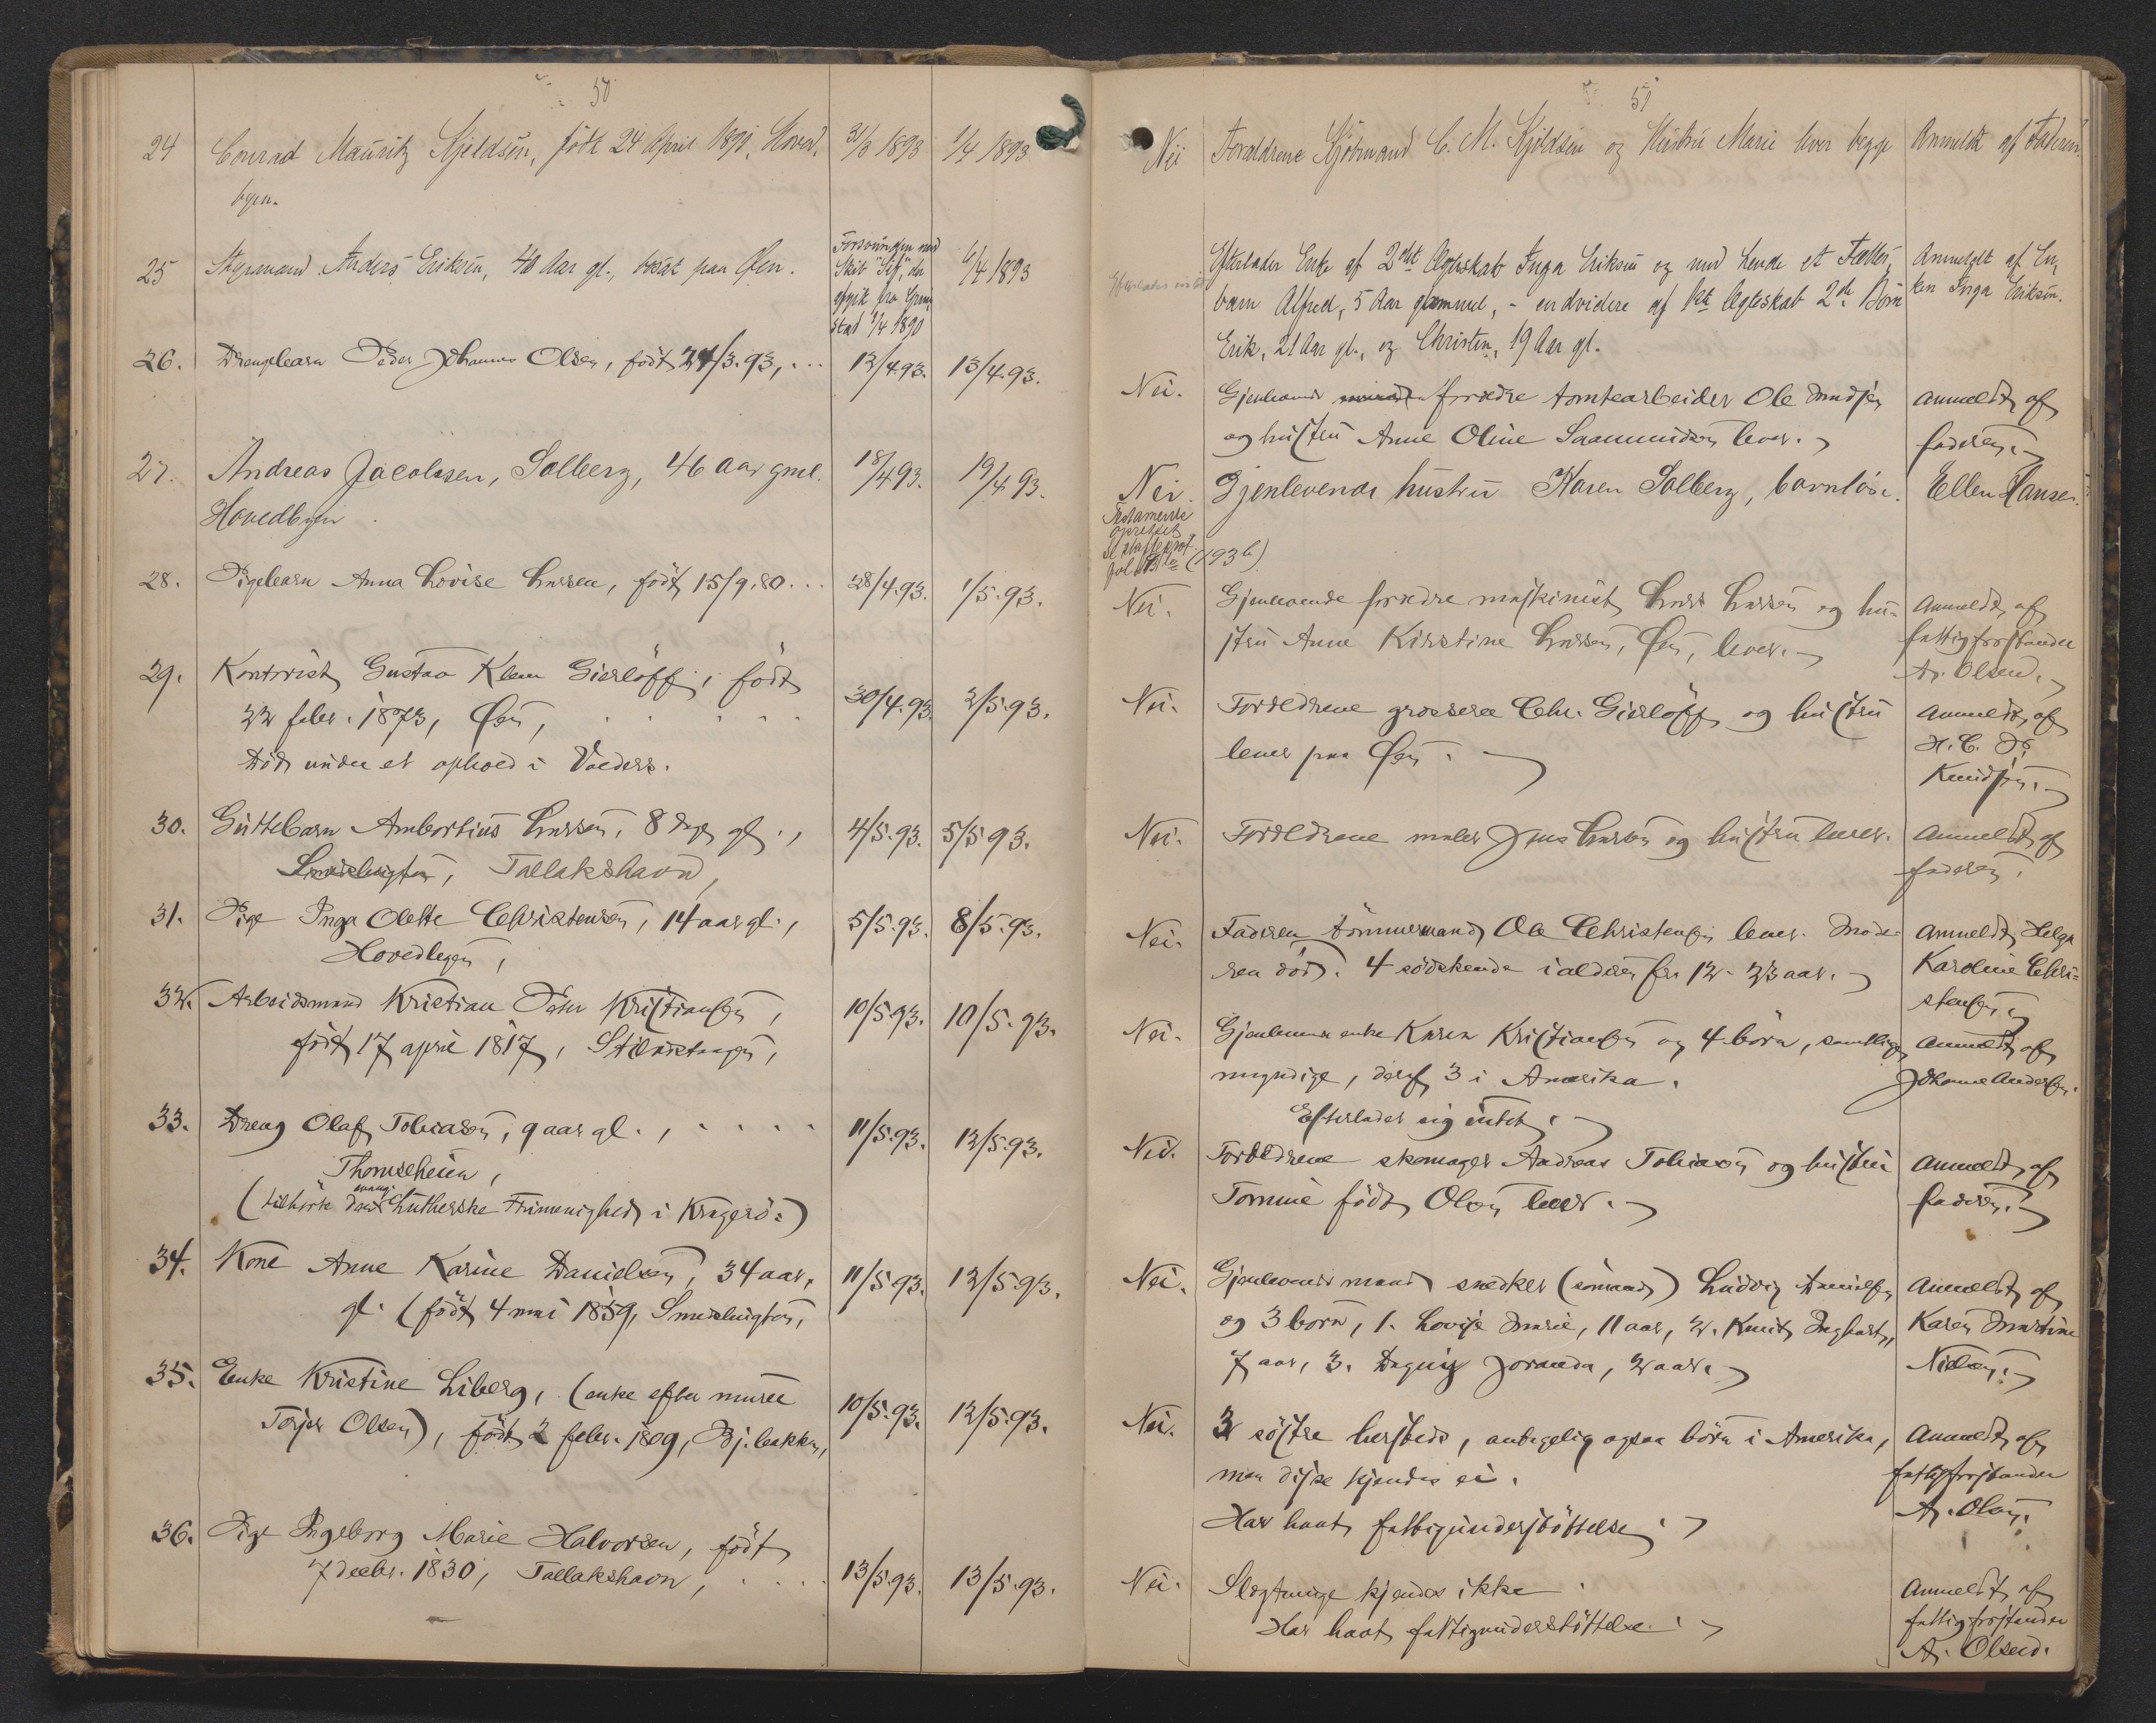 50
24 Conrad Mauritz Kjeldsen, född 24 April 1891, Hoved- 31/3 1893 1/4 1893
byen.
25 Styrmand Anders Eriksen, 40 Aar gl., bosat paa Øen. Forsvunden med Skib "Sif", der afgik fra Grimstad 1/4 1890 6/4 1893
26. Drengebarn Peder Johannes Olsen, født 27/3.93, ... 12/4.93. 13/4.93.
27. Andreas Jacobsen, Solberg, 46 aar gml. 18/4 93. 19/4 93.
Hovedbyen
28. Pigebarn Anna Lovise Larsen, født 15/9.80... 28/4.93. 1/5.93.
29. Kontorist Gustav Klem Gierløff, født
22 febr. 1873, Øen, 30/4.93. 2/5.93.
Død under et ophold i Valders.
30. Guttebarn Ambortius Larsen, 8 dage gl., 4/5.93. 5/5 93.
Smedsbugten, Tallakshavn,
31. Pige Inga Olette Christensen, 14 aar gl., 5/5.93. 8/5.93.
Hovedbyen,
32. Arbeidsmand Kristian Peter Kristiansen, 10/5.93. 10/5.93.
født 17 april 1817,
33. Dreng Olaf Tobiasen, 9 aar gl., 11/5.93. 12/5.93.
Thomesheien,
(tilhørte den evang. Lutherske Frimenighed i Kragerø.)
34. Kone Anne Karine Danielsen, 34 aar, 11/5 93. 12/5 93.
gl. (født 4 mai 1859, Smedsbugten,
35. Enke Kristine Liberg, (enke efter murer 10/5.93. 12/5.93.
Torjer Olsen), født 2 febr. 1809, Bj.bakken,
36. Pige Ingeborg Marie Halvorsen, født
7 decbr. 1830, Tallakshavn, 13/5.93. 13/5.93.
51
Nei Forældrene Sjömand C. M. Kjeldsen og Hustru Marie lever begge Anmeldt af Faderen.
Efterlader intet Efterlader Enke af 2det Ægteskab Inga Eriksen og med hende et Fælles- Anmeldt af En-
barn Alfred, 5 Aar gammel, - endvidere af 1ste Ægteskab 2de Børn ken Inga Eriksen.
Erik, 21 Aar gl., og Christen, 19 Aar gl.
Nei. Gjenlevende forældre tomtearbeider Ole Madsen anmeldt af
og hustru Anne Oline Saamundsen lever. faderen.
Nei. Gjenlevende hustru Karen Solberg, barnløse. Ellen Hansen.
Testamente
oprettet
(193 b)
Nei. Gjenlevende forældre maskinist Lars Larsen og hu- Anmeldt af
stru Anne Kirstine Larsen, Øen, lever. fattigforstander
A. Olsen.
Nei. Forældrene grosserer Chr. Gierløff og hustru Anmeldt af
lever paa Øen. H. C.
Knudsen.
Nei. Forældrene maler Jens Larsen og hustru lever. Anmeldt af
faderen.
Nei. Faderen tømmermand Ole Christensen lever. Mode- Anmeldt Helga
ren død. 4 sødskende i alderen fra 12-23 aar. Karoline Chri-
stensen
Nei. Gjenlevende enke Karen Kristiansen og 4 børn, samtlige anmeldt af
myndige, deraf 3 i Amerika. Johanne Andersen.
Efterlader sig intet.
Nei. Forældrene skomager Andreas Tobiasen og hustru Anmeldt af
Tomine født Olsen lever. faderen.
Nei. Gjenlevende mand snedker (sømand) Ludvig Danielsen Anmeldt af
og 3 børn, 1. Lovise Marie, 11 aar, 2. Knut Ingbart, Karen Martine
7 aar, 3. Dagny Joranda, 2 aar. Nielsen.
Nei. 3 søstre hersteds, antagelig ogsaa børn i Amerika, Anmeldt af
men disse kjendes ei. fattigforstander
Har havt fattigunderstøttelse. A. Olsen.
Nei. Slægtninge kjendes ikke. Anmeldt af
Har havt fattigunderstøttelse. fattigforstander
A. Olsen.